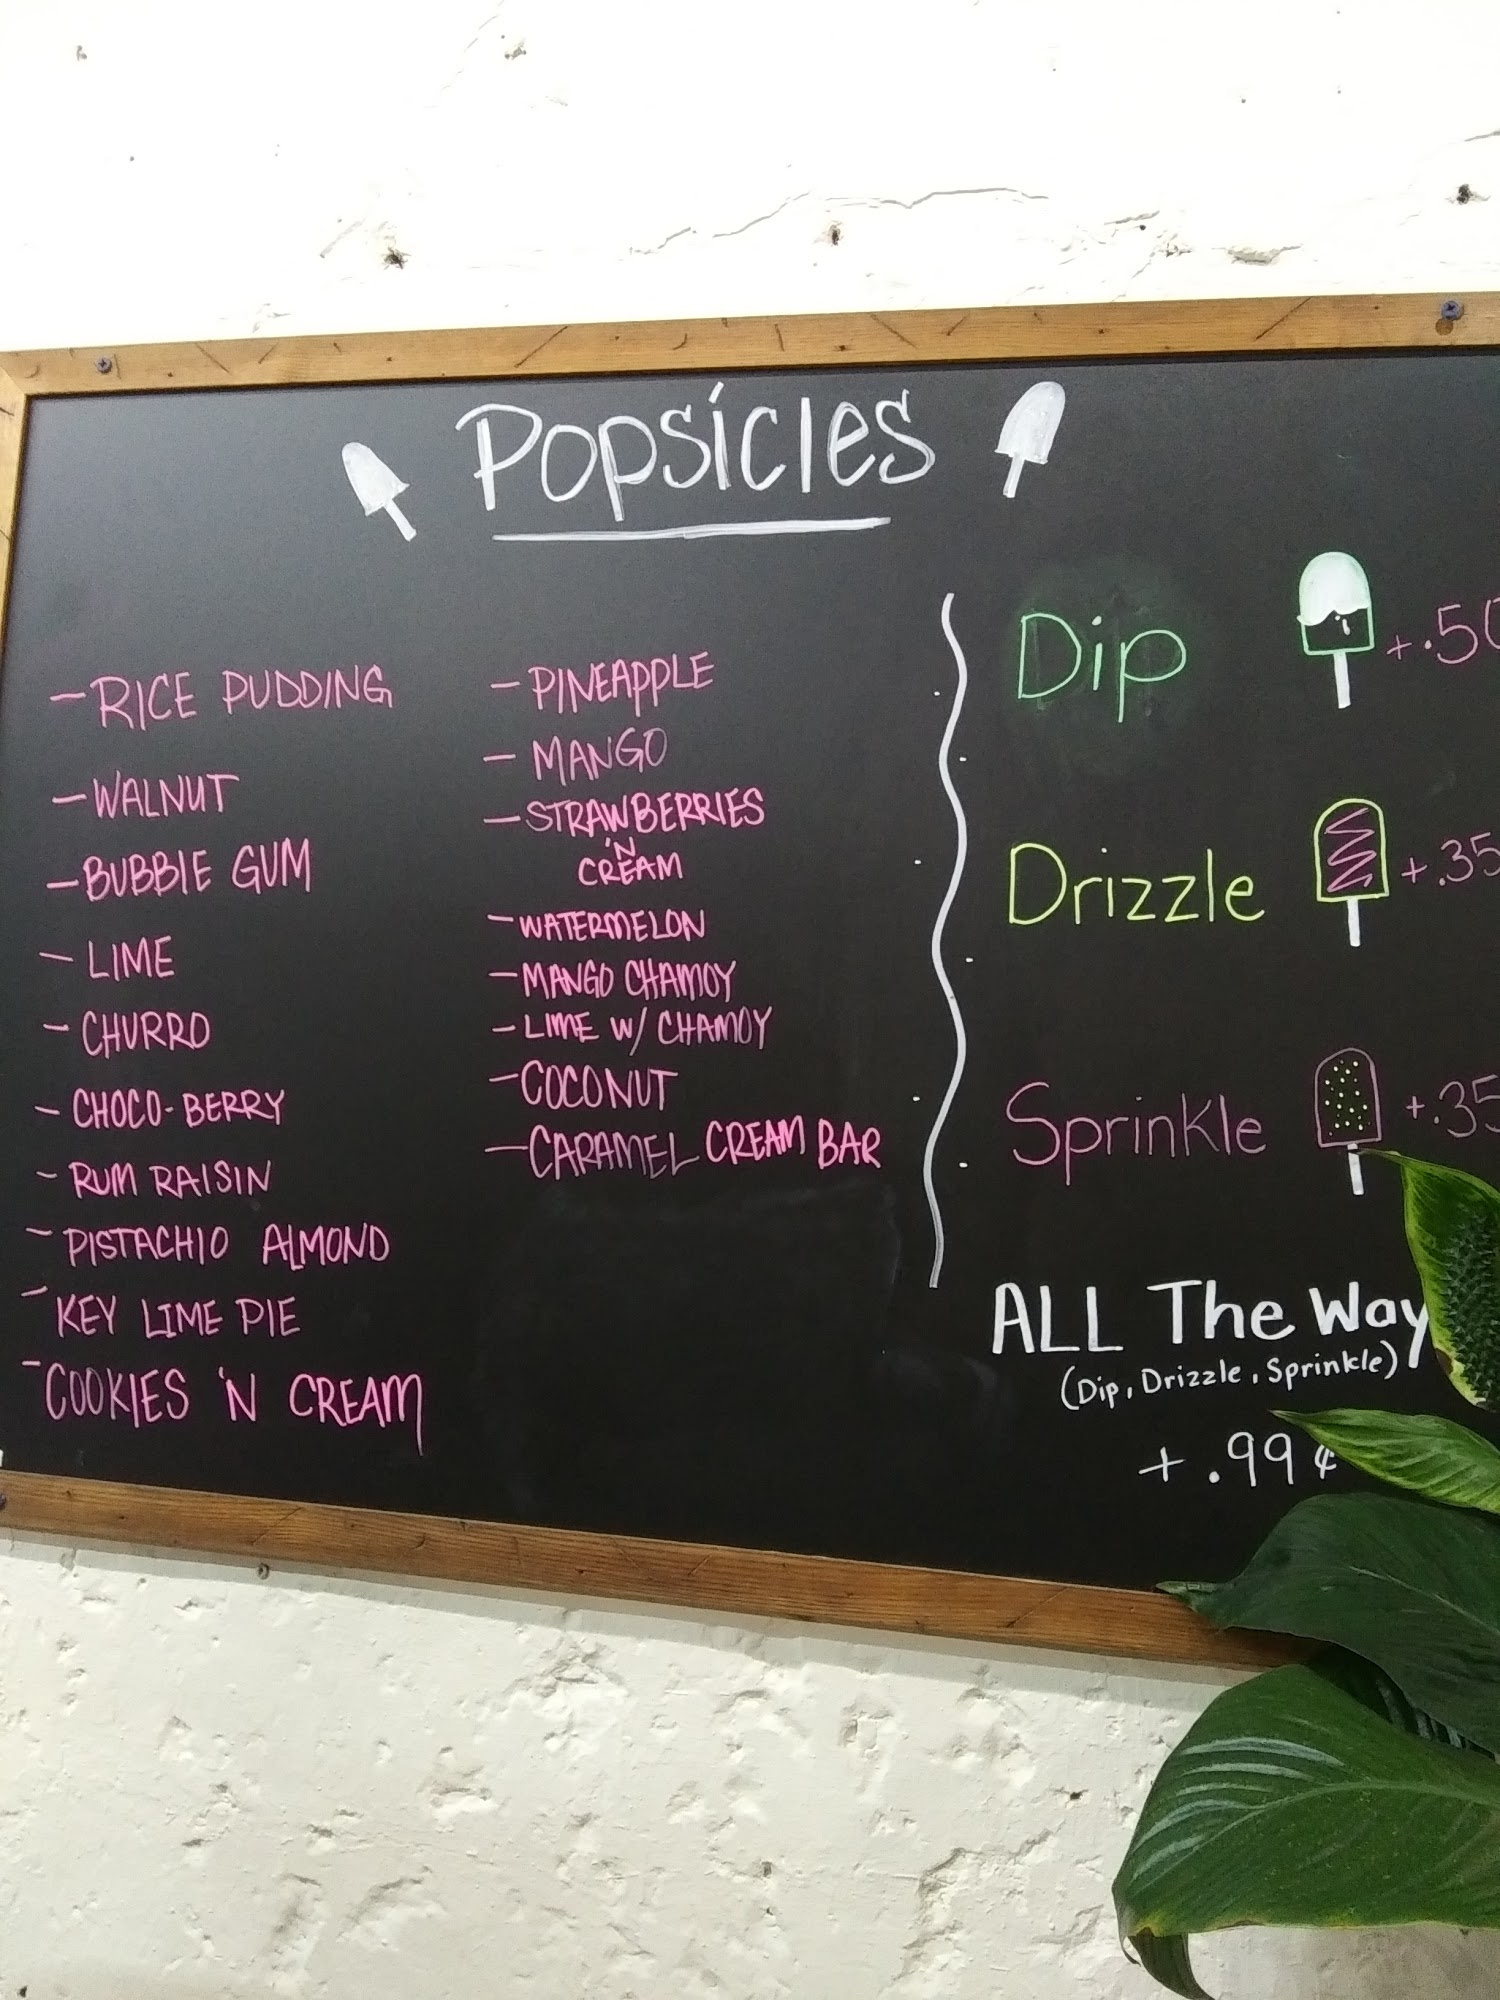 Popsicles
- RICE PUDDING
- WALNUT
- BUBBLE GUM
- LIME
- CHURRO
- CHOCO-BERRY
- RUM RAISIN
- PISTACHIO ALMOND
- KEY LIME PIE
- COOKIES 'N CREAM
- PINEAPPLE
- MANGO
- STRAWBERRIES
'N
CREAM
- WATERMELON
- MANGO CHAMOY
- LIME W/ CHAMOY
- COCONUT
- CARAMEL CREAM BAR
Dip +.50
Drizzle +.35
Sprinkle +.35
ALL The Way
(Dip, Drizzle, Sprinkle)
+ .99¢